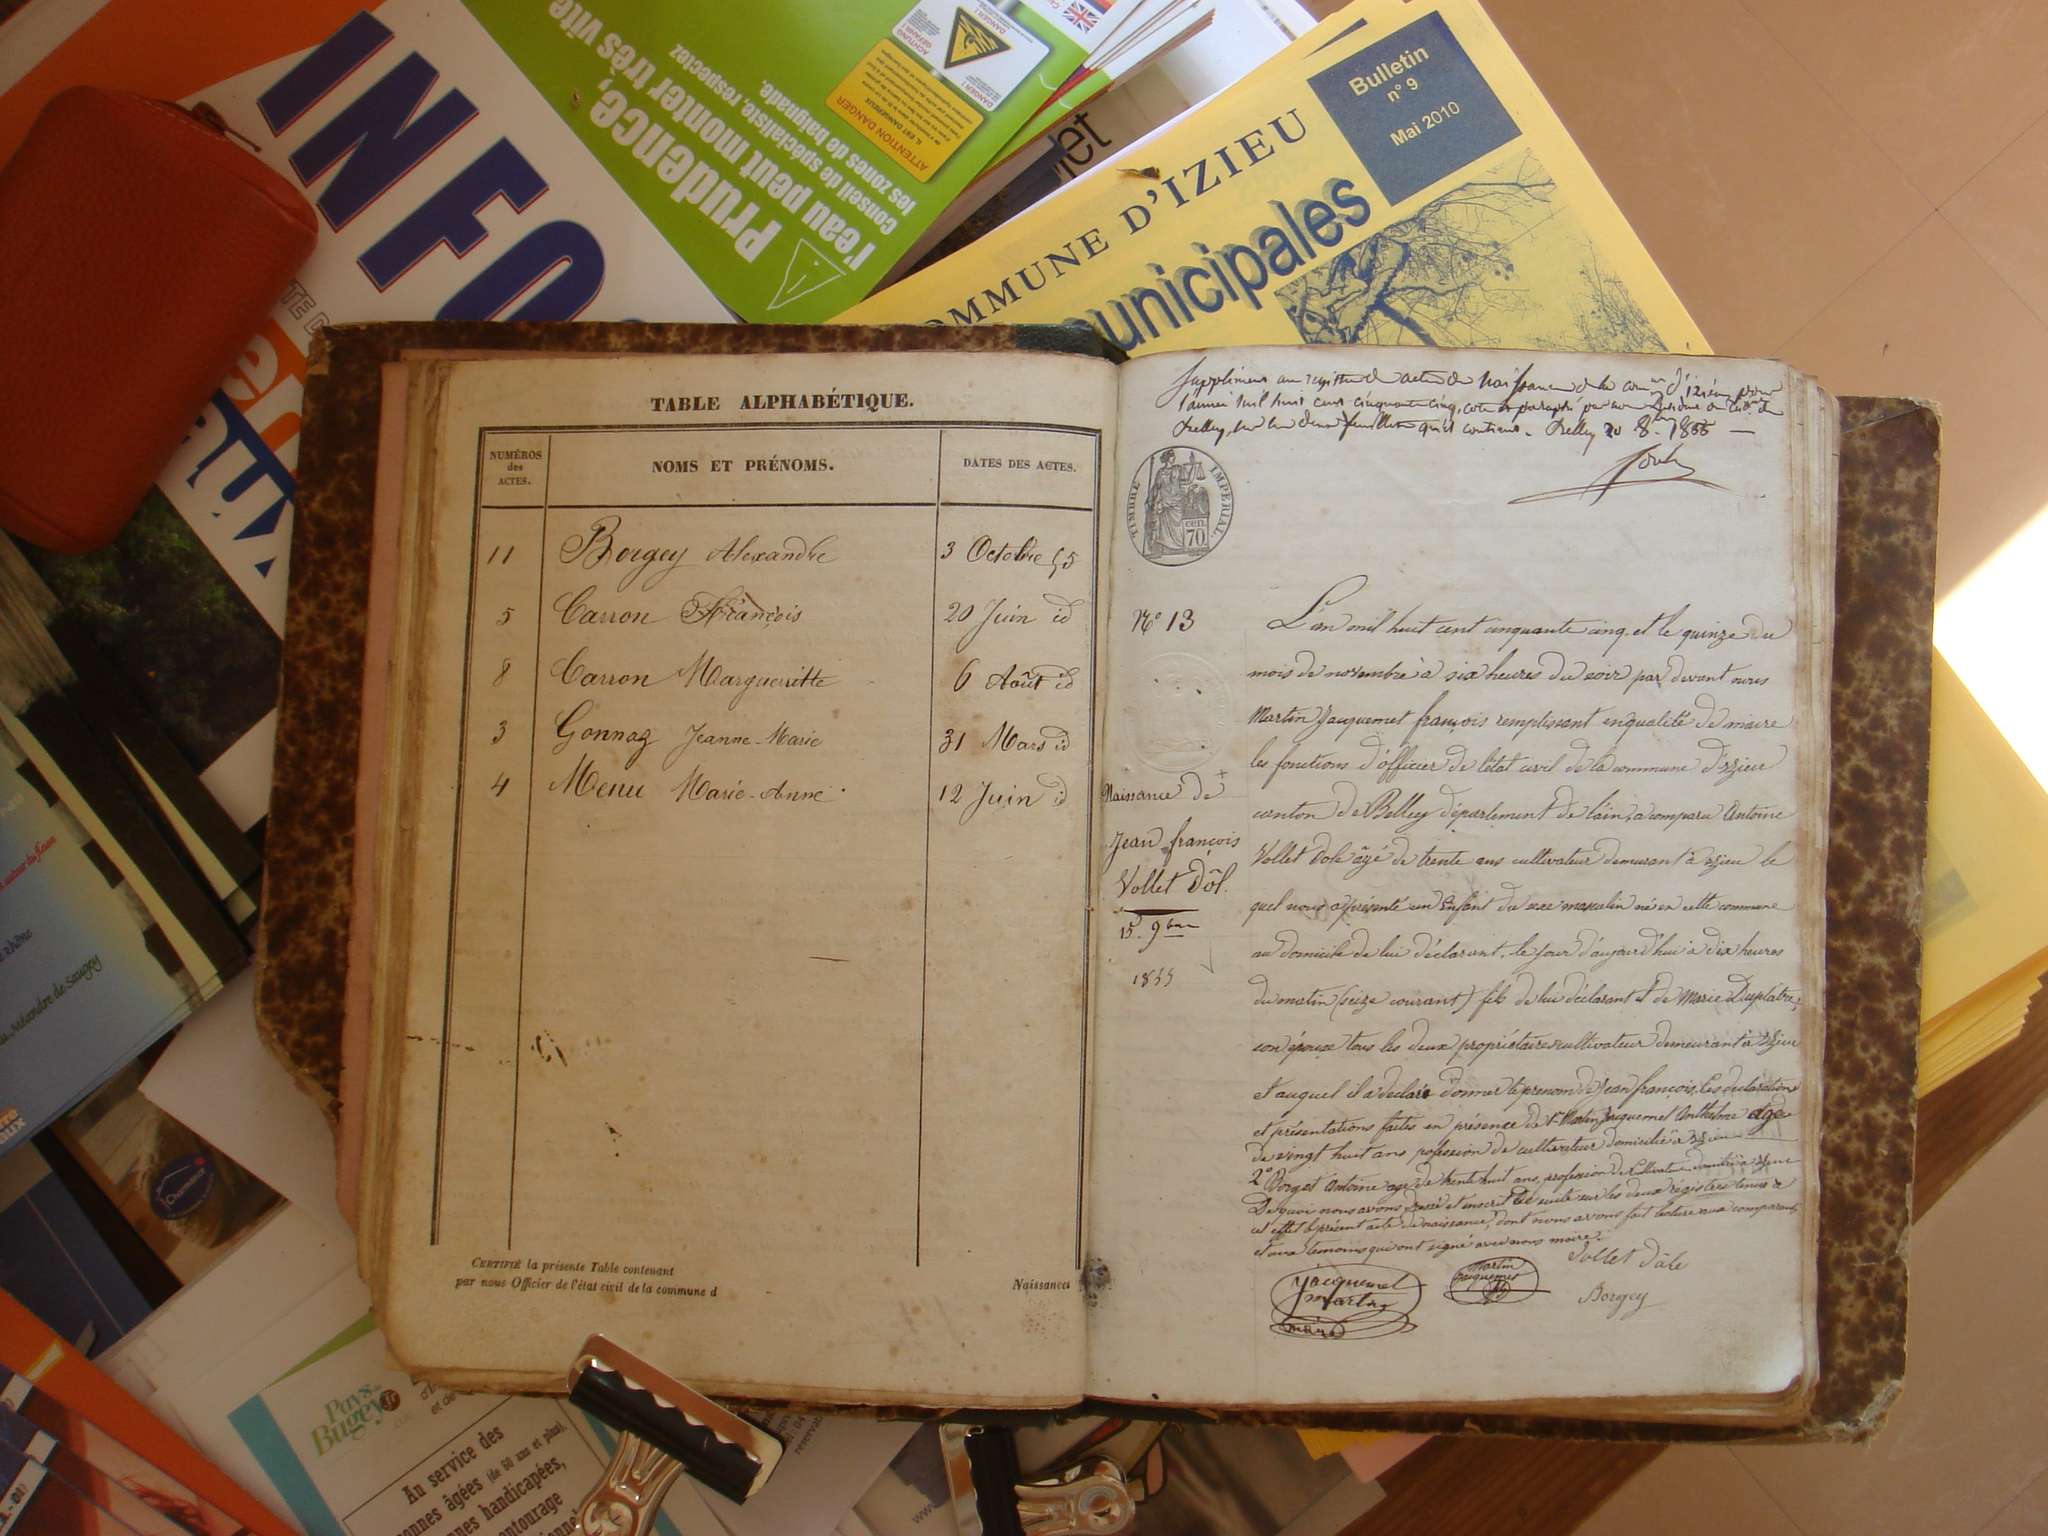 INFO
Prudence,
l'eau peut monter très vite
conseil de spécialiste, respectez
les zones de baignade.
ATTENTION DANGER
DANGER !
ACHTUNG
GEFAHR !
COMMUNE D'IZIEU
Municipales
Bulletin
n° 9
Mai 2010
TABLE ALPHABÉTIQUE.
NUMÉROS
des
ACTES.
NOMS ET PRÉNOMS.
DATES DES ACTES.
11 Borgey Alexandre 3 Octobre 55
5 Carron François 20 Juin id
8 Carron Margueritte 6 Août id
3 Gonnaz Jeanne-Marie 31 Mars id
4 Menu Marie-Anne 12 Juin id
CERTIFIÉ la présente Table contenant
par nous Officier de l'état civil de la commune d Naissances
Supplément au registre de actes de Naissance de la d'izieu pour
l'année mil huit cent cinquante cinq, coté et paraphé par
Belley, sur les deux feuillets qu'il contient. Belley 20 8 1855
TIMBRE IMPÉRIAL
CEN. 70
N° 13
Naissance de
Jean françois
Vollet Dôl.
15 9bre
1855
L'an mil huit cent cinquante cinq et le quinze du
mois de novembre à six heures du soir par devant nous
Martin Jacquemet françois remplissant en qualité de maire
les fonctions d'officier de l'état civil de la commune d'izieu
canton de Belley département de l'ain, a comparu Antoine
Vollet Dole âgé de trente ans cultivateur demurant à izieu le
quel nous a présenté un Enfant du sexe masculin né en cette commune
au domicile de lui déclarant, le jour d'aujourd'hui à dix heures
du matin (seize courant) fils de lui déclarant et de Marie Duplatre,
son épouse tous les deux propriétaires cultivateur demeurant à izieu
et auquel il a déclaré donner le prenom de Jean françois. les declarations
et présentations faites en présence de 1° Martin Jacquemet Anthelme agé
de vingt huit ans pofession de cultivateur domicilié à izieu
2° Borget Antoine age de trente huit ans, profession de Cultivateur domicilié à izieu
De quoi nous avons dressé et inscrit de suite sur les deux régistres tenus à
cet effet le présent acte de naissance, dont nous avons fait lecture aux comparants
et aux temoins qui ont signé avec nous maire.
Vollet Dôle
Jacquemet
Martin
maire
Martin
Jacquemet
Borgey
méandre de Saugey
Pays
Bugey
Au service des
personnes âgées (de 60 ans et plus),
handicapées,
entourage